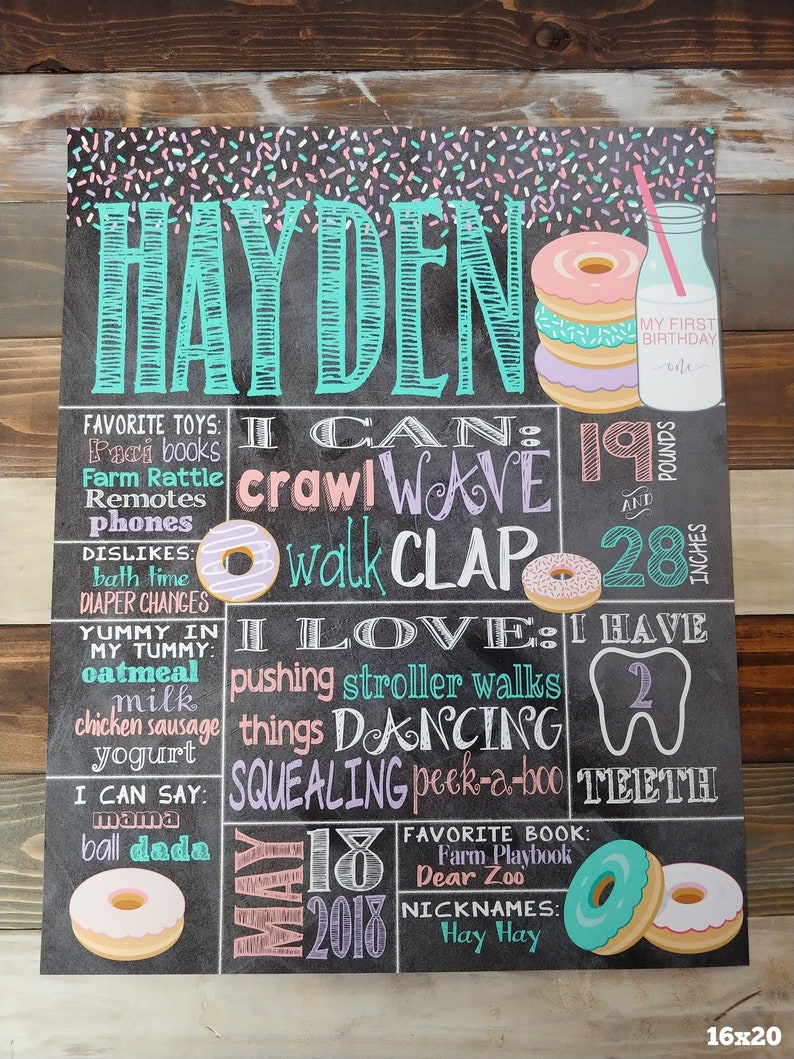 HAYDEN
MY FIRST
BIRTHDAY
one
FAVORITE TOYS:
Paci books
Farm Rattle
Remotes
phones
DISLIKES:
bath time
DIAPER CHANGES
YUMMY IN
MY TUMMY:
oatmeal
milk
chicken sausage
yogurt
I CAN SAY:
mama
ball dada
I CAN:
crawl WAVE
walk CLAP
I LOVE:
pushing stroller walks
things DANCING
SQUEALING peek-a-boo
19 POUNDS
AND
28 INCHES
I HAVE
2
TEETH
MAY 18
2018
FAVORITE BOOK:
Farm Playbook
Dear Zoo
NICKNAMES:
Hay Hay
16x20